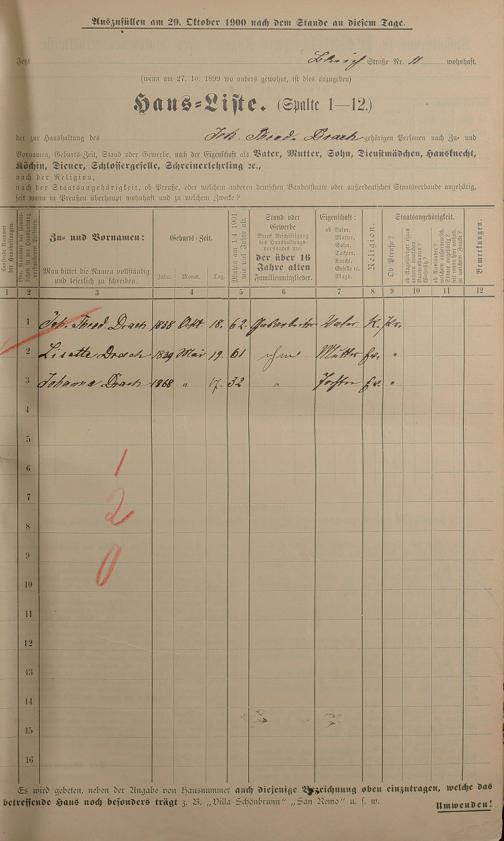 Auszufüllen am 29. Oktober 1900 nach dem Stande an diesem Tage.
Jetzt Straße Nr. 11 wohnhaft.
(wenn am 27. 10. 1899 wo anders gewohnt, ist dies anzugeben)
Haus-Liste. (Spalte 1—12.)
der zur Haushaltung des Joh. Theod. Drach gehörigen Personen nach Zu- und
Vornamen, Geburts-Zeit, Stand oder Gewerbe, nach der Eigenschaft als Vater, Mutter, Sohn, Dienstmädchen, Hausknecht,
Köchin, Diener, Schlossergeselle, Schreinerlehrling ꝛc.,
nach der Religion,
nach der Staatsangehörigkeit, ob Preuße, oder welchem anderen deutschen Bundesstaate oder außerdeutschen Staatsverbande angehörig,
seit wann in Preußen überhaupt wohnhaft und zu welchem Zwecke?
Zu- und Vornamen:
Man bittet die Namen vollständig
und leserlich zu schreiben.
Geburts-Zeit.
Jahr. Monat. Tag.
Stand oder
Gewerbe
der über 16
Jahre alten
Familienmitglieder.
Eigenschaft:
ob Vater,
Mutter,
Sohn,
Tochter,
Knecht,
Geselle ꝛc.
Magd.
Religion.
Staatsangehörigkeit.
Ob Preuße?
Bemerkungen.
1 2 3 4 5 6 7 8 9 10 11 12
1 Joh. Theod. Drach 1838 Sept 18. 62 Vater
2 Lisette Drach 1839 Mai 19. 61 ohne Mutter Ev. "
3 Johanna Drach 1868 " 17. 32 " Tochter Ev. "
4
5
6
7
8
9
10
11
12
13
14
15
16
1
2
0
Es wird gebeten, neben der Angabe von Hausnummer auch diejenige Bezeichnung oben einzutragen, welche das
betreffende Haus noch besonders trägt z. B. „Villa Schönbrunn" „San Remo" u. s. w.
Umwenden!